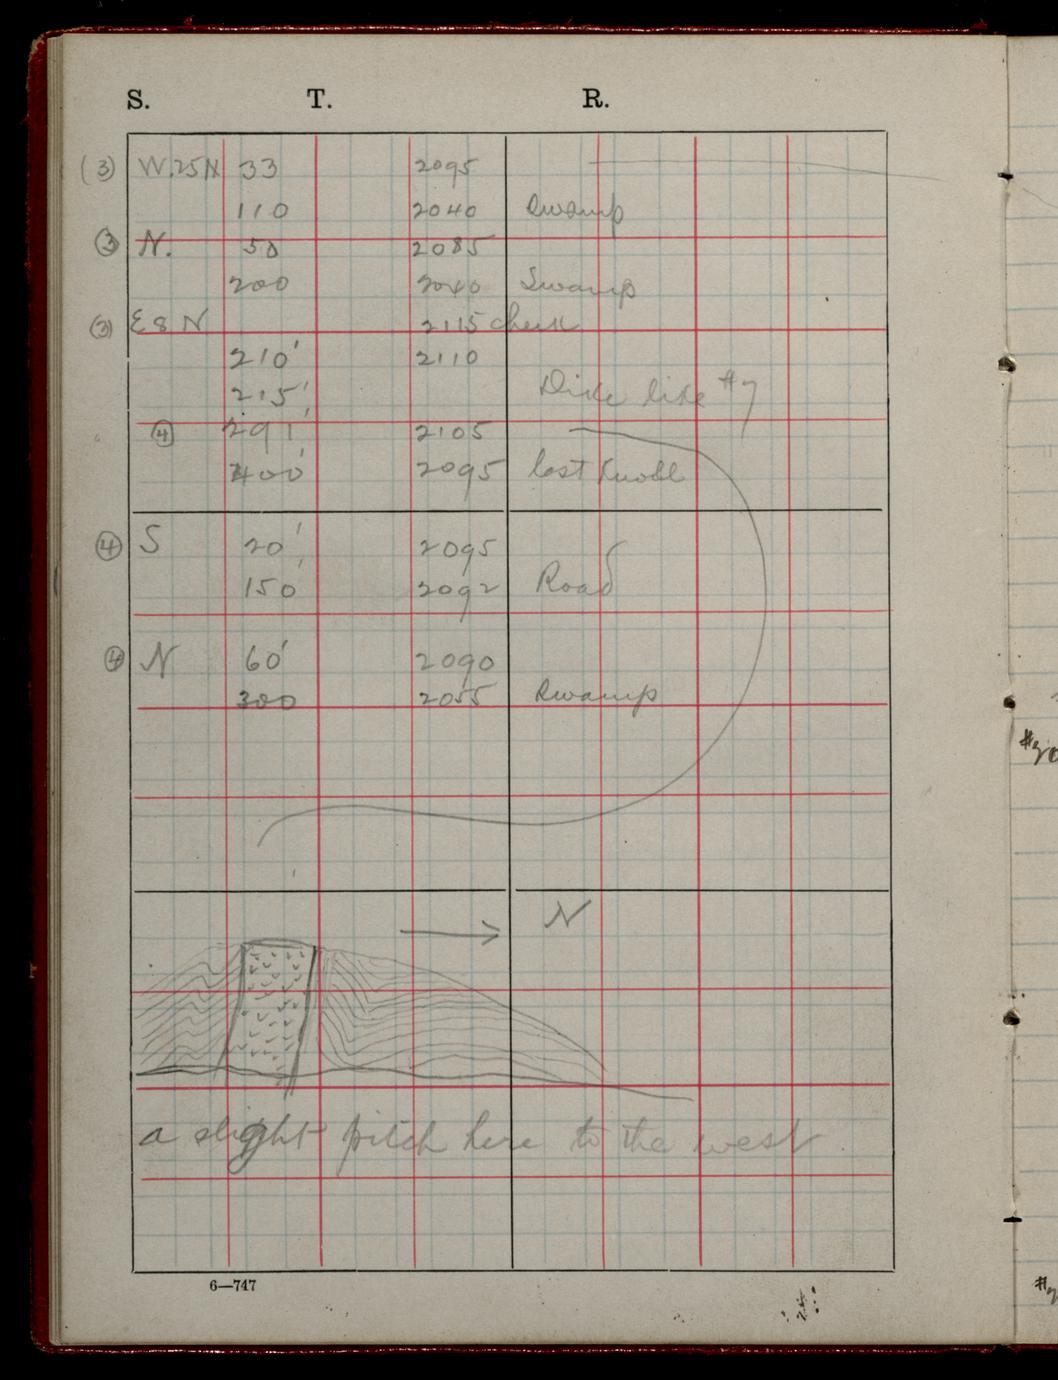 S. T. R.
(3) W.25N 33 2095
110 2040 Swamp
(3) N. 50 2085
200 2040 Swamp
(3) E 8 N 2115 check
210' 2110
215' Dike like #7
(4) 291' 2105
400' 2095 last Knoll
(4) S 20' 2095
150' 2092 Road
(4) N 60' 2090
300 2055 Swamp
N
a slight pitch here to the west
6—747